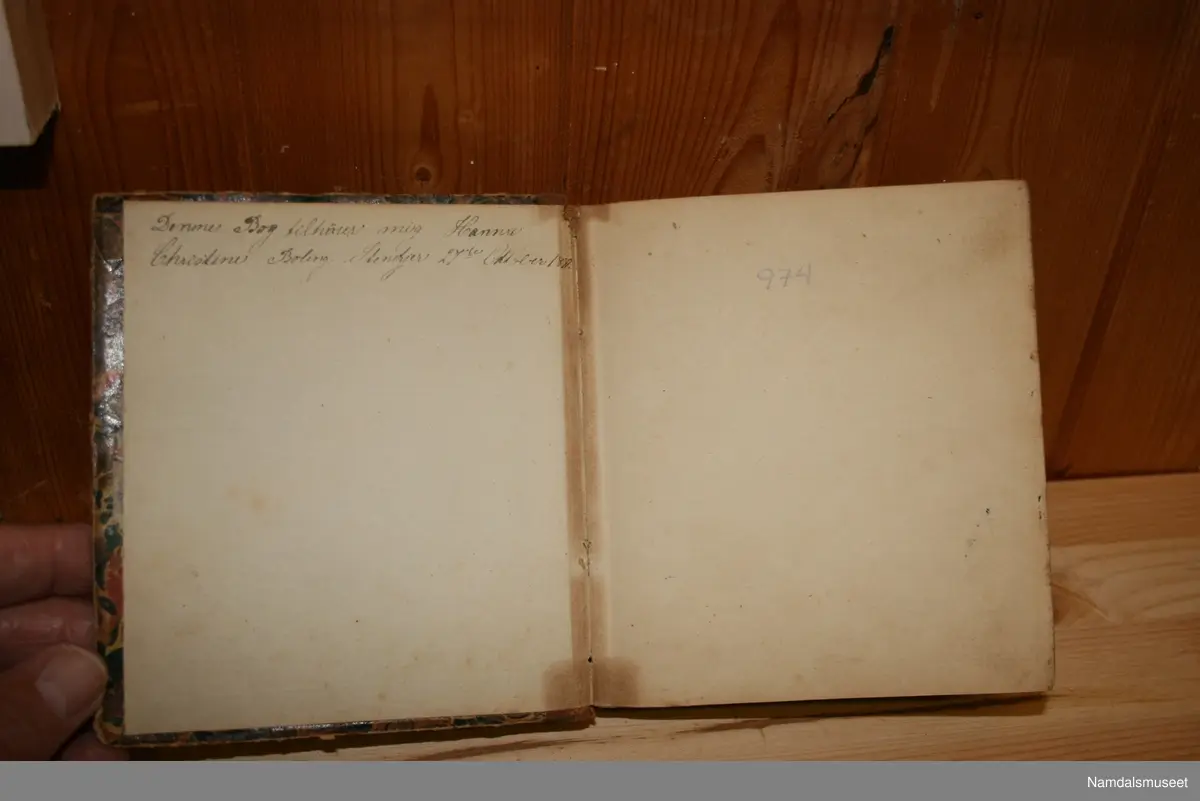 Denne Bog tilhører mig Hanna
Christine Boling Stenkjer 27de Oktober 188
974
Namdalsmuseet